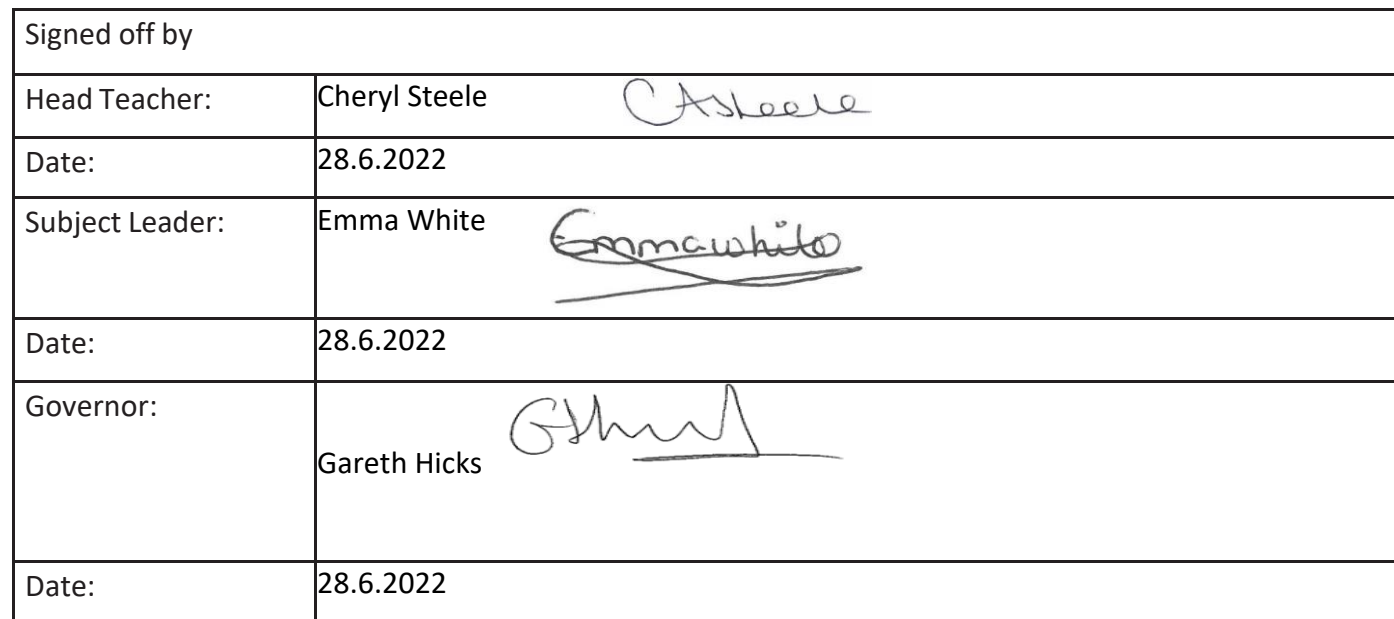 Signed off by
Head Teacher: Cheryl Steele CASteele
Date: 28.6.2022
Subject Leader: Emma White Emmawhite
Date: 28.6.2022
Governor:
Gareth Hicks
Date: 28.6.2022